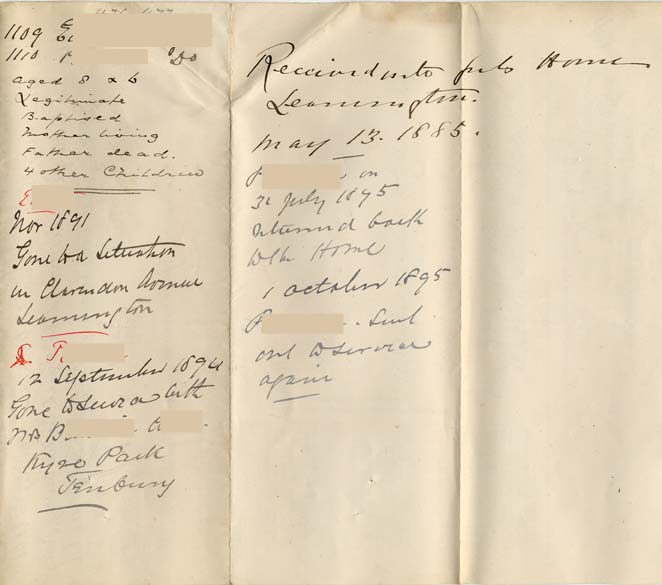 1109 E
1110 F Do
aged 8 & 6
Legitimate
Baptised
Mother living
Father dead.
4 other Children
E
Nov 1891
Gone to a Situation
in Clarendon Avenue
Leamington
F.
12 September 1894
Gone to Service with
Mrs B
Kyre Park
Tenbury
Received into
Home
Leamington.
May 13. 1885.
F on
31 July 1895
returned back
to the Home
1 October 1895
F Sent
out to service
again